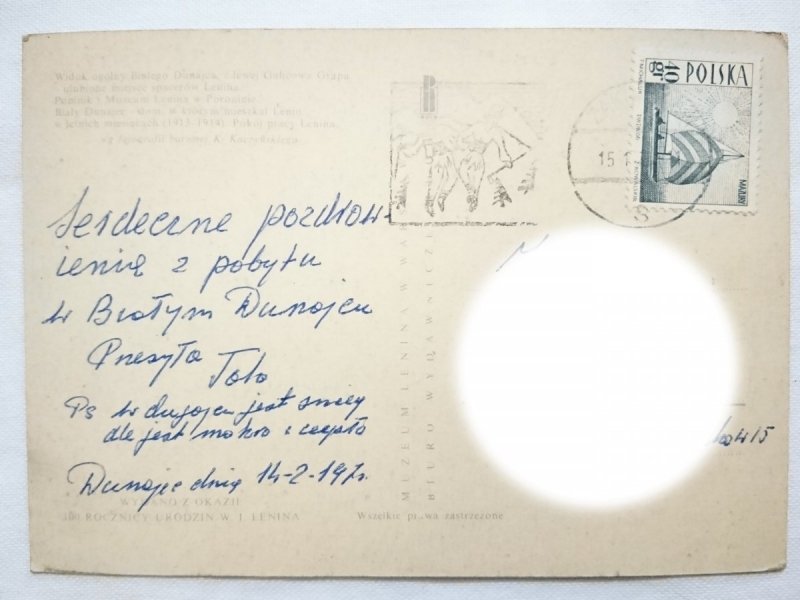 Widok ogólny Białego Dunajca, z lewej Gubłówka Grapa
- ulubione miejsce spacerów Lenina.
Pomnik i Muzeum Lenina w Poroninie.
Biały Dunajec - dom, w którym mieszkał Lenin
w letnich miesiącach (1913-1914). Pokój pracy Lenina.
wg litografii barwnej K.
Serdeczne pozdrow-
ienia z pobytu
w Białym Dunajcu
Przesyła
Ps w dunajcu jest śnieg
ale jest mokro i ciepło
Dunajec dnia 14-2-197r.
WYDANO Z OKAZJI
100 ROCZNICY URODZIN W. I. LENINA
MUZEUM LENINA W WA
BIURO WYDAWNICZE
Wszelkie prawa zastrzeżone
R
40 gr
POLSKA
MAZURY
15
15